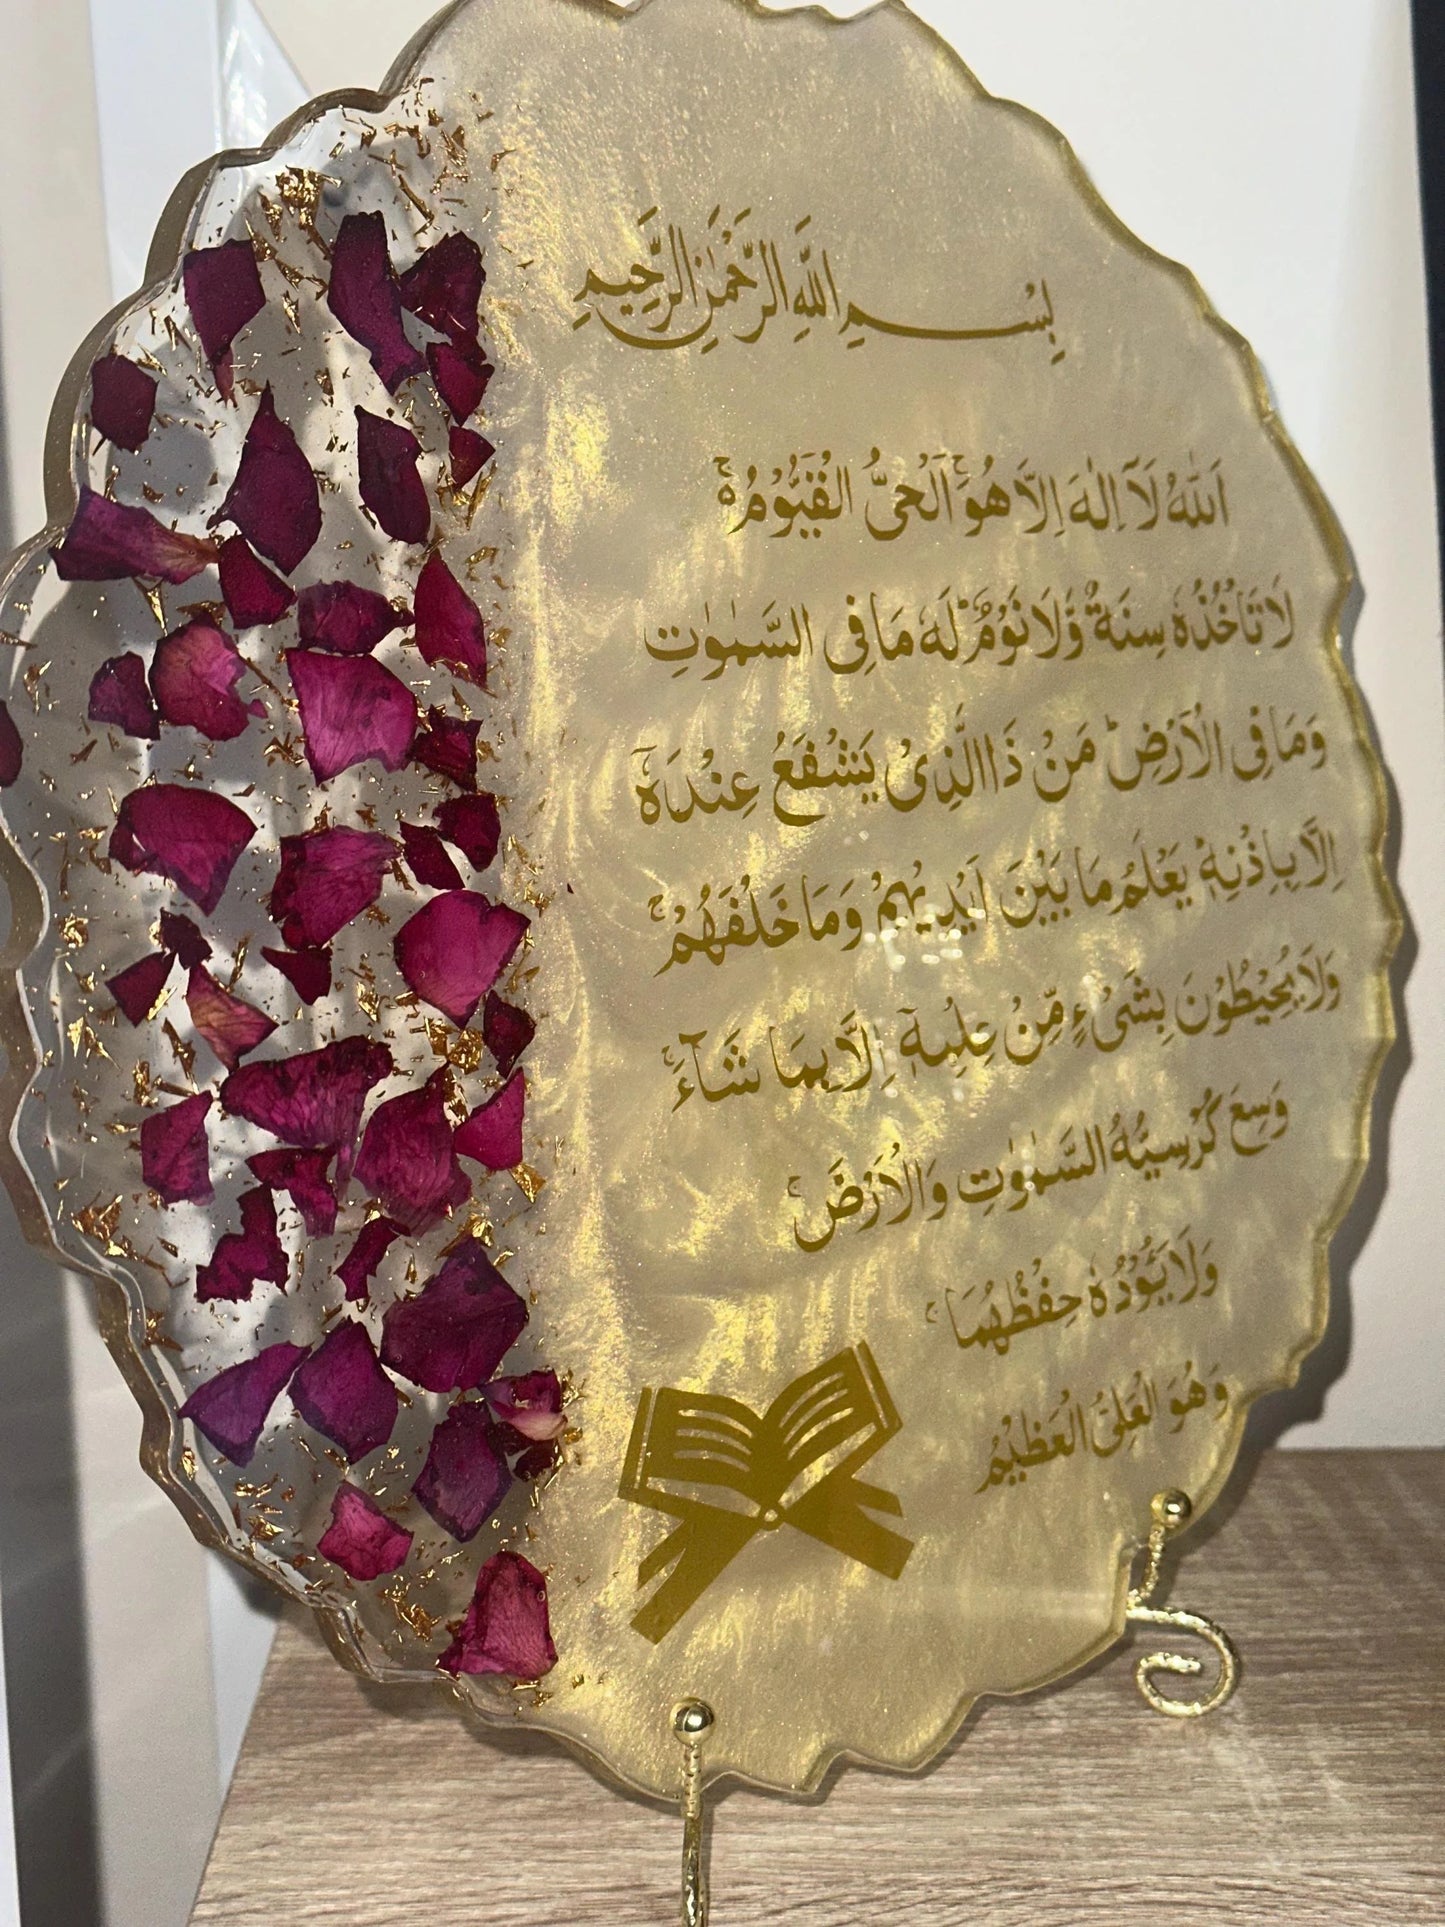 بِسْمِ اللَّهِ الرَّحْمٰنِ الرَّحِيمِ
اَللّٰهُ لَاۤ اِلٰهَ اِلَّا هُوَۚ اَلْحَىُّ الْقَيُّوْمُ ۚ
لَا تَاْخُذُهٗ سِنَةٌ وَّلَا نَوْمٌ ؕ لَهٗ مَا فِى السَّمٰوٰتِ
وَمَا فِى الْاَرْضِ ؕ مَنْ ذَا الَّذِىْ يَشْفَعُ عِنْدَهٗۤ
اِلَّا بِاِذْنِهٖ ؕ يَعْلَمُ مَا بَيْنَ اَيْدِيْهِمْ وَمَا خَلْفَهُمْ ۚ
وَلَا يُحِيْطُوْنَ بِشَىْءٍ مِّنْ عِلْمِهٖۤ اِلَّا بِمَا شَآءَ ۚ
وَسِعَ كُرْسِيُّهُ السَّمٰوٰتِ وَالْاَرْضَ ۚ
وَلَا يَـُٔوْدُهٗ حِفْظُهُمَا ۚ
وَهُوَ الْعَلِىُّ الْعَظِيْمُ